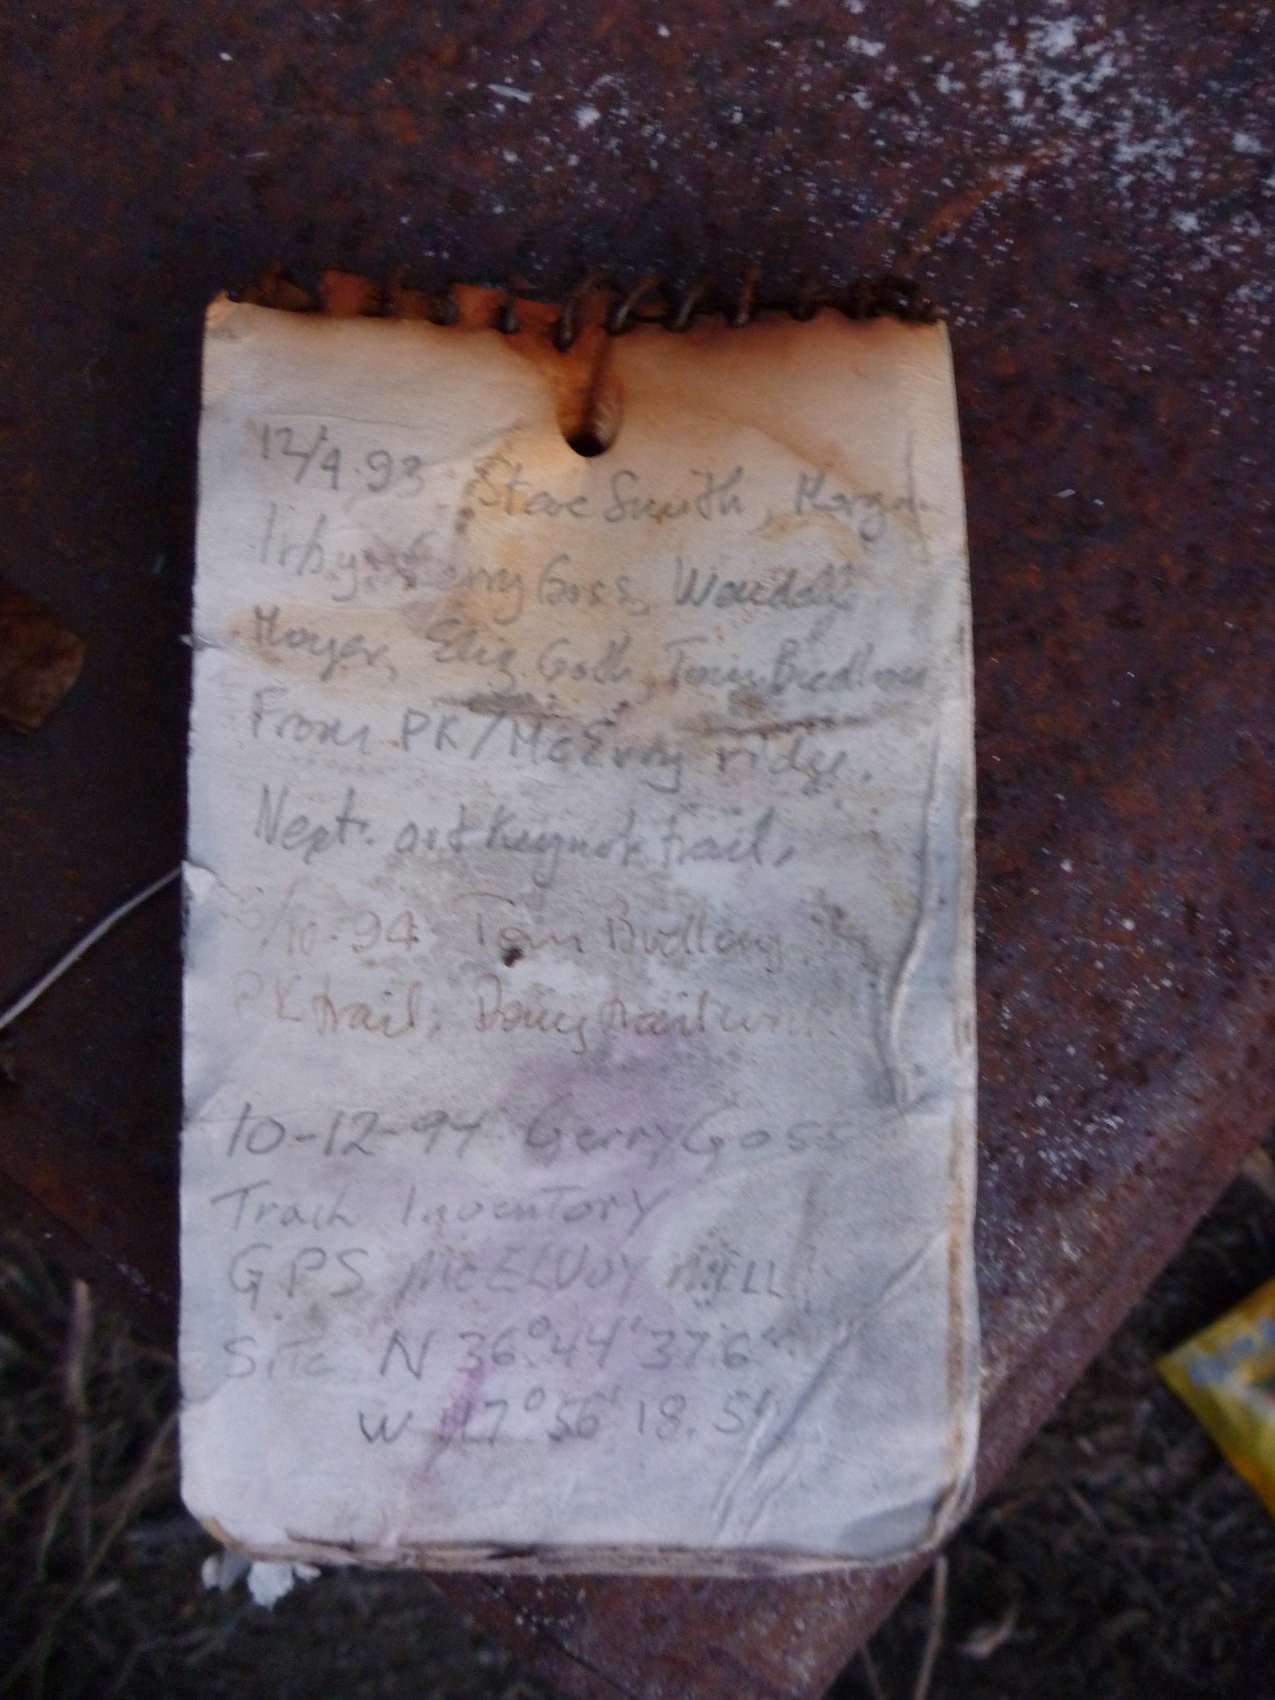 12/9.93 Steve Smith,
Irby, Gerry Goss, Wendell
Moyer, Eliz. Goth, Tom Budlong
From PK/McEvoy ridge.
Next: out Keynot trail.
10-94 Tom Budlong
PK trail. Doing trail
10-12-94 Gerry Goss
Trach Inventory
GPS McELVOY MILL
Site N 36°44'37.6"
W 117°56'18.5"